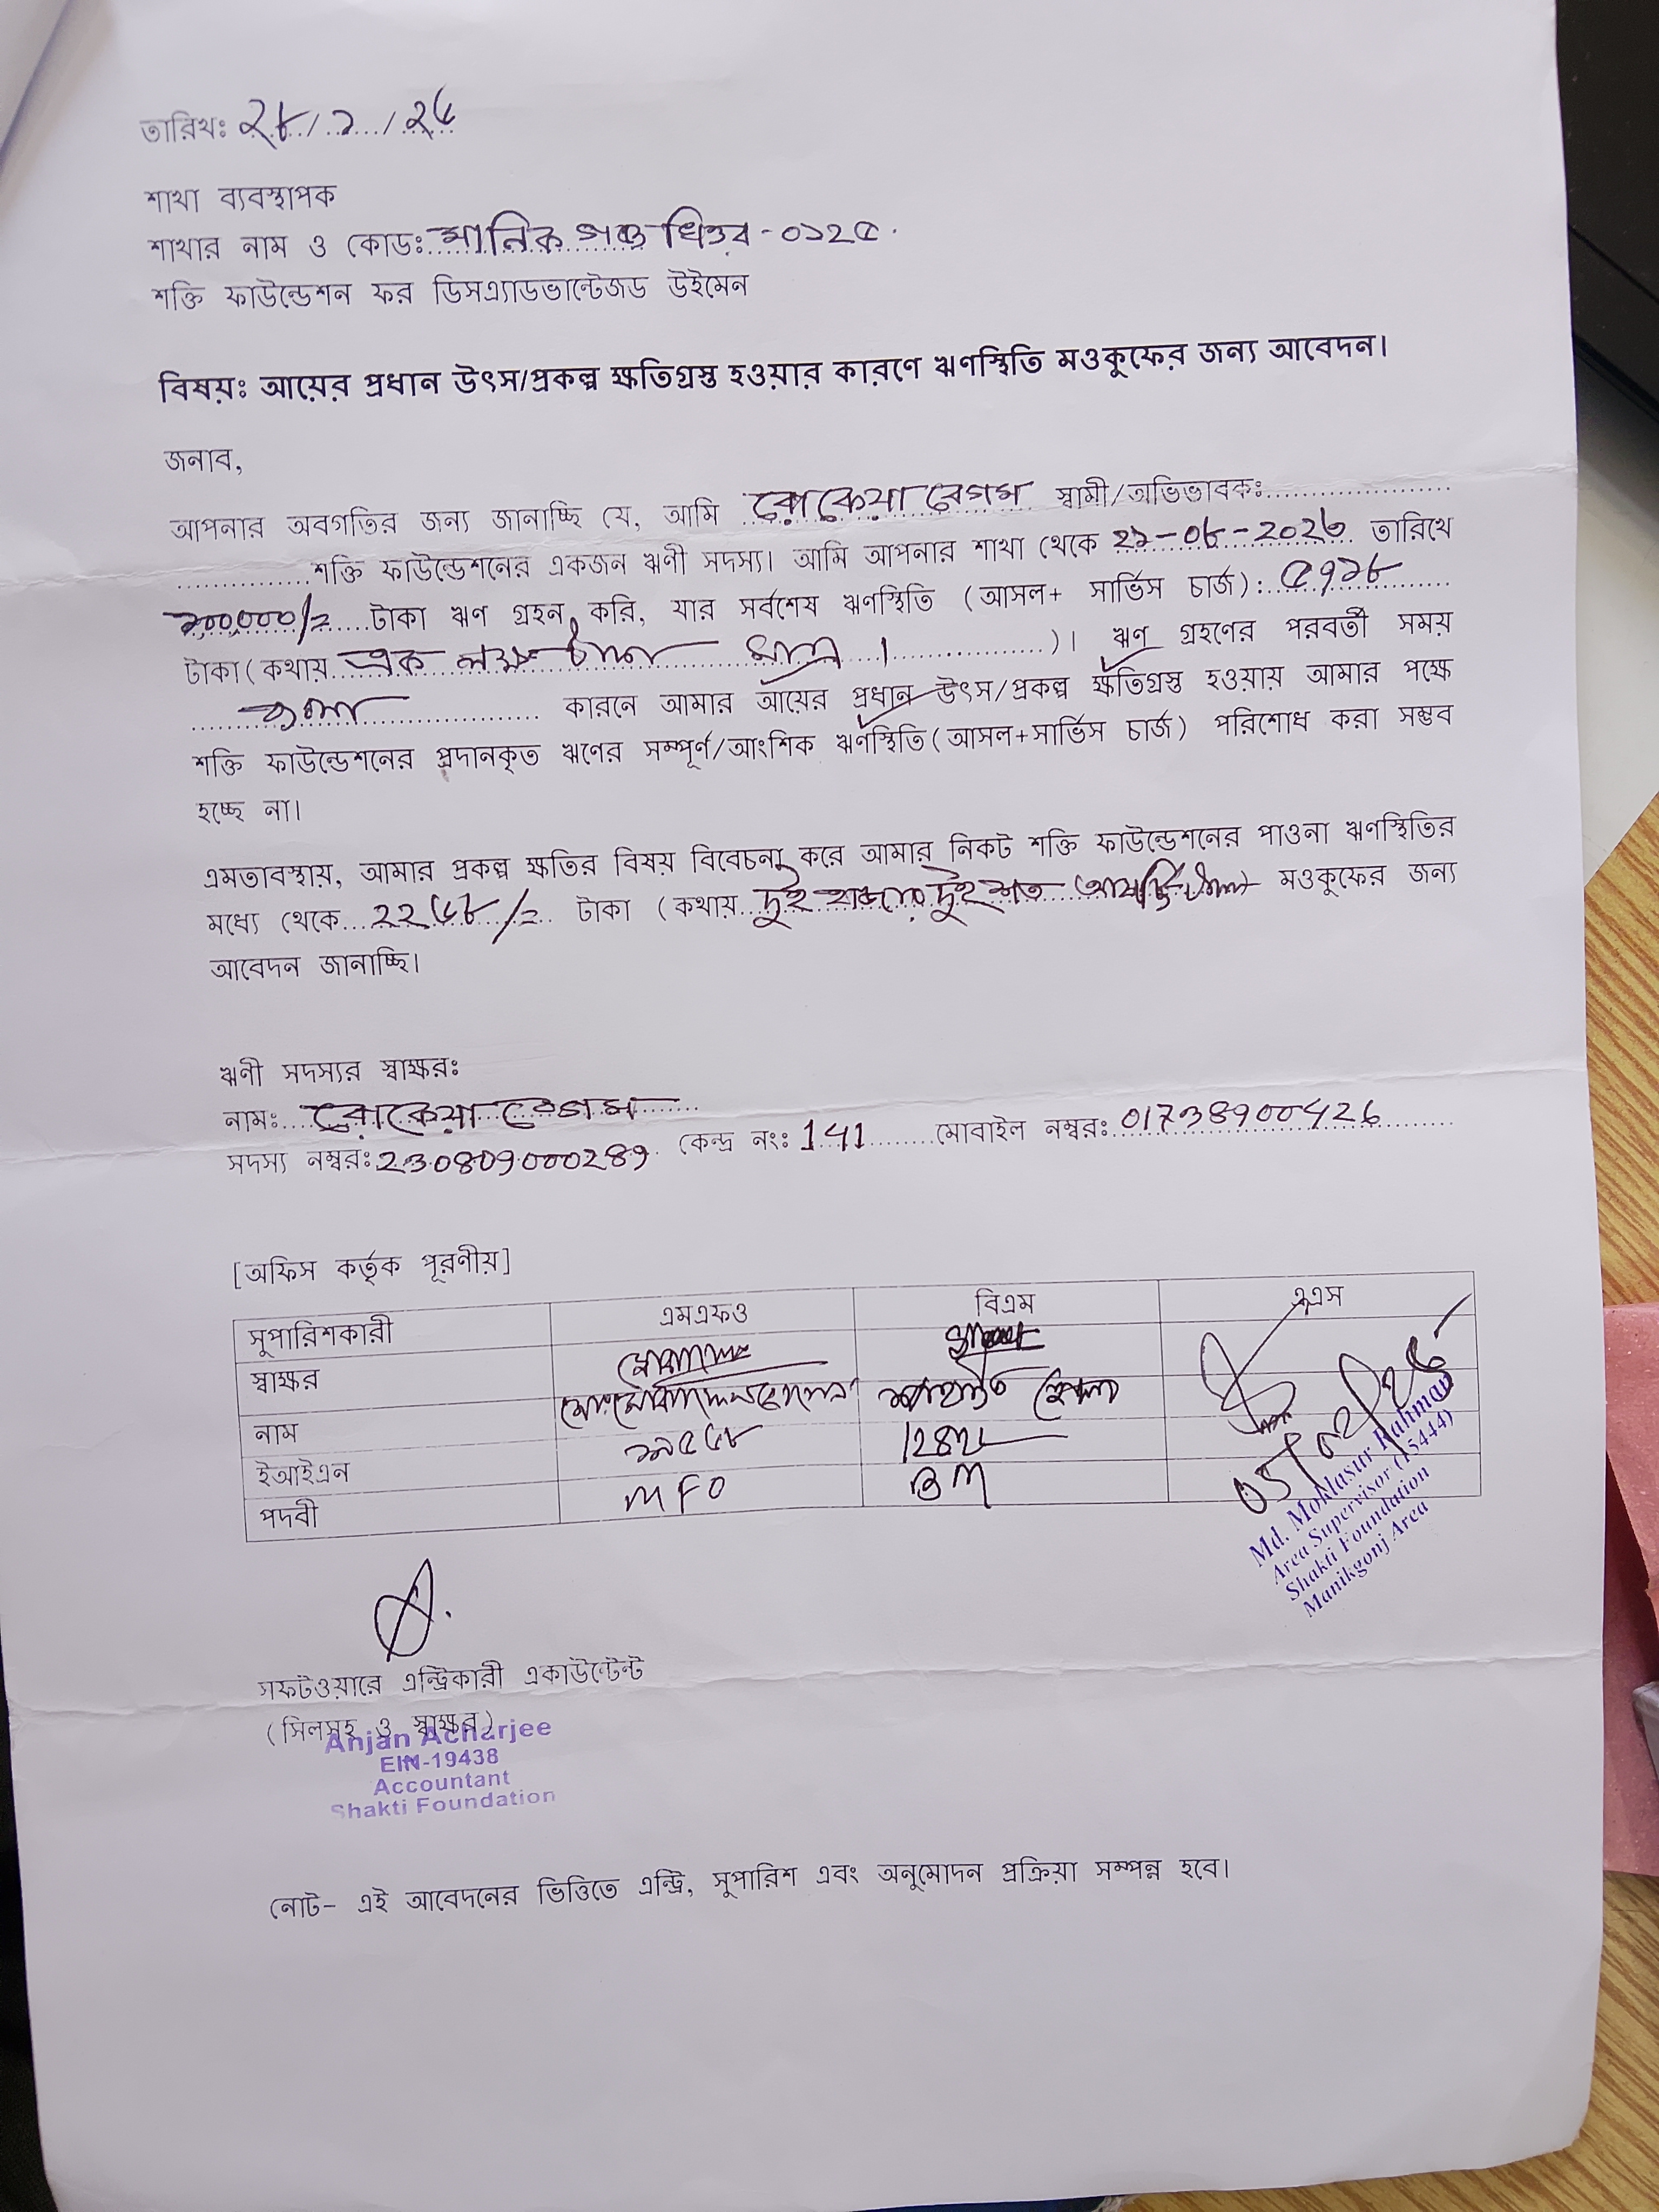 তারিখঃ ২৮/১/২৬
শাখা ব্যবস্থাপক
শাখার নাম ও কোডঃ মানিকগঞ্জ ঘিওর-০১২৫
শক্তি ফাউন্ডেশন ফর ডিসএ্যাডভান্টেজড উইমেন
বিষয়ঃ আয়ের প্রধান উৎস/প্রকল্প ক্ষতিগ্রস্ত হওয়ার কারণে ঋণস্থিতি মওকুফের জন্য আবেদন।
জনাব,
আপনার অবগতির জন্য জানাচ্ছি যে, আমি রোকেয়া বেগম স্বামী/অভিভাবকঃ
শক্তি ফাউন্ডেশনের একজন ঋণী সদস্য। আমি আপনার শাখা থেকে ২১-০৮-২০২৩ তারিখে
১০০,০০০/= টাকা ঋণ গ্রহন করি, যার সর্বশেষ ঋণস্থিতি (আসল+ সার্ভিস চার্জ): ৫৭১৮
টাকা (কথায় এক লক্ষ টাকা মাত্র।)। ঋণ গ্রহণের পরবর্তী সময়
কারনে আমার আয়ের প্রধান উৎস/প্রকল্প ক্ষতিগ্রস্ত হওয়ায় আমার পক্ষে
শক্তি ফাউন্ডেশনের প্রদানকৃত ঋণের সম্পূর্ণ/আংশিক ঋণস্থিতি(আসল+সার্ভিস চার্জ) পরিশোধ করা সম্ভব
হচ্ছে না।
এমতাবস্থায়, আমার প্রকল্প ক্ষতির বিষয় বিবেচনা করে আমার নিকট শক্তি ফাউন্ডেশনের পাওনা ঋণস্থিতির
মধ্যে থেকে ২২৬৮/= টাকা (কথায় দুই হাজার দুই শত আষট্টি টাকা মওকুফের জন্য
আবেদন জানাচ্ছি।
ঋণী সদস্যর স্বাক্ষরঃ
নামঃ রোকেয়া বেগম
সদস্য নম্বরঃ 230809000289 কেন্দ্র নং: 141 মোবাইল নম্বরঃ 01738900426
[অফিস কর্তৃক পূরণীয়]
সুপারিশকারী এমএফও বিএম এএস
স্বাক্ষর
নাম
ইআইএন ১৯৫৬৮
পদবী MFO BM
Md. Moklasur Rahman
Area Supervisor (15444)
Shakti Foundation
Manikgonj Area
সফটওয়ারে এন্ট্রিকারী একাউন্টেন্ট
(সিলসহ ও স্বাক্ষর)
Anjan Acharjee
EIN-19438
Accountant
Shakti Foundation
নোট- এই আবেদনের ভিত্তিতে এন্ট্রি, সুপারিশ এবং অনুমোদন প্রক্রিয়া সম্পন্ন হবে।